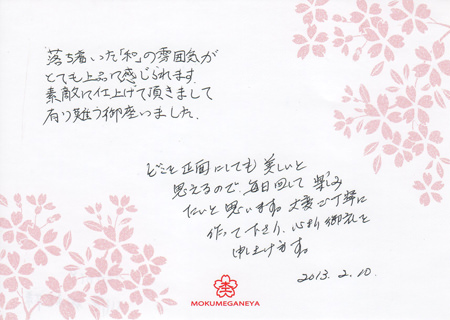 落ち着いた「和」の雰囲気が
とても上品で感じられます.
素敵に仕上げて頂きまして
有り難う御座いました.
どこを正面にしても美しいと
思えるので、毎日回して楽しみ
たいと思います。大変ご丁寧に
作って下さり、心より御礼を
申し上げます。
2013. 2. 10.
MOKUMEGANEYA